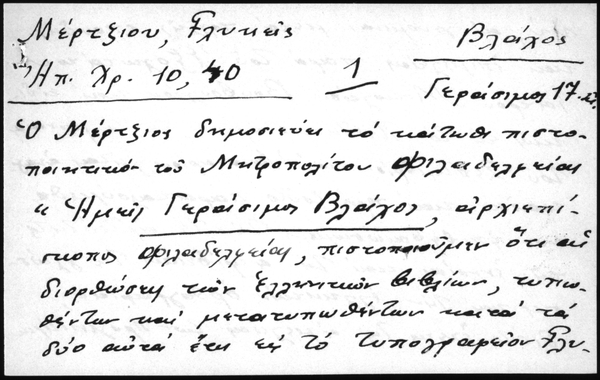 Μέρτζιου, Γλυκεῖς
Βλάχος
Ἠπ. Χρ. 10, 40
1
Γεράσιμος 17.
Ὁ Μέρτζιος δημοσιεύει τό κάτωθι πιστο-
ποιητικό τοῦ Μητροπολίτου Φιλαδελφείας
« Ἡμεῖς Γεράσιμος Βλάχος, ἀρχιεπί-
σκοπος Φιλαδελφείας, πιστοποιοῦμεν ὅτι αἱ
διορθώσεις τῶν Ἑλληνικῶν βιβλίων, τυπω-
θέντων καί μετατυπωθέντων κατά τά
δύο αὐτά ἔτη εἰς τό τυπογραφεῖον Γλυ-